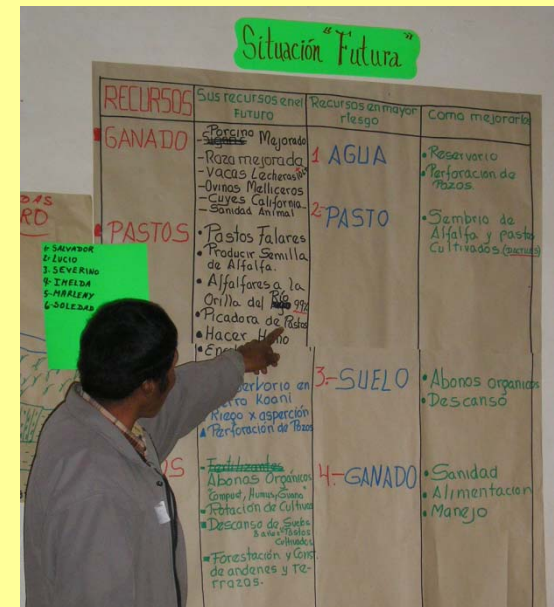 Situación "Futura"
RECURSOS
Sus recursos en el
Futuro
Recursos en mayor
riesgo
Como mejorarlo
GANADO
Porcino Mejorado
- Raza mejorada
- Vacas Lecheras
- Ovinos Melliceros
- Cuyes California
- Sanidad Animal
1 AGUA
• Reservorio
• Perforación de
Pozos.
PASTOS
• Pastos Falares
• Producir Semilla
de Alfalfa.
• Alfalfares a la
Orilla del Río
99%
• Picadora de Pastos
• Hacer Heno
2 PASTO
• Sembrio de
Alfalfa y pastos
Cultivados
DAS
RO
1- SALVADOR
2- LUCIO
3. SEVERINO
4- IMELDA
5- MARLENY
6- SOLEDAD
en
Koani
Riego x asperción
Perforación de Pozos
3.- SUELO
• Abonos organicos
• Descanso
OS
- Fertilizantes
Abonas Organicos
Compost, Humus, Guano
Rotación de Cultivos
Descanso de Suelos
Pastos
Cultivados
Forestación y Const.
de andenes y te-
rrazas.
4.- GANADO
• Sanidad
• Alimentacion
• Manejo